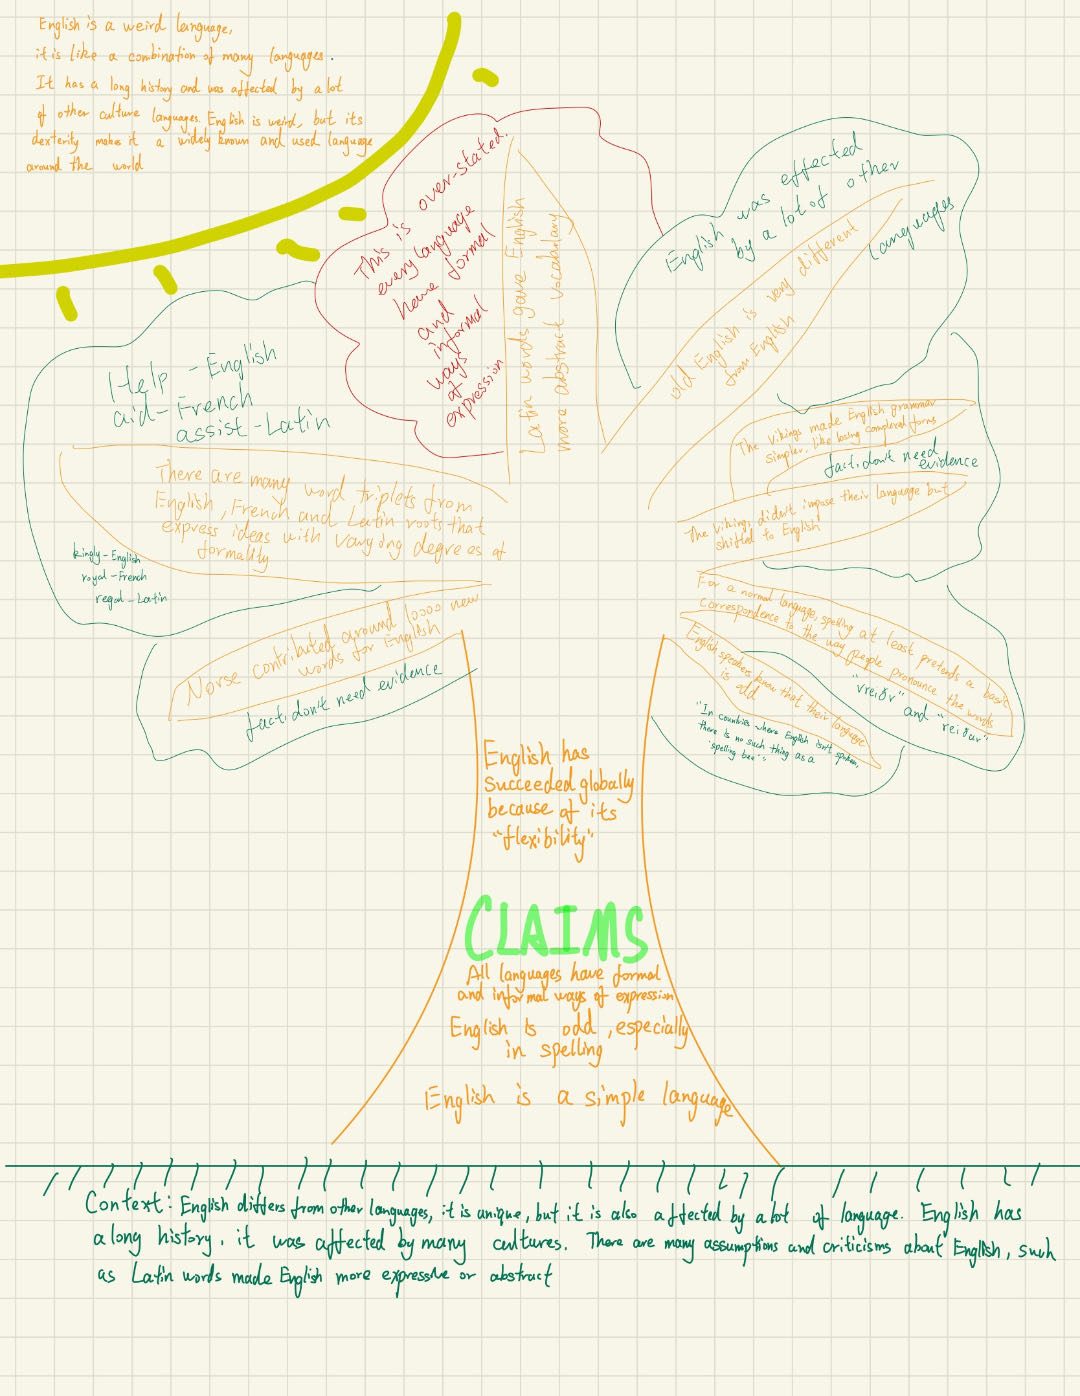 English is a weird language,
it is like a combination of many languages.
It has a long history and was affected by a lot
of other culture languages. English is weird, but its
dexterity makes it a widely known and used language
around the world
This is over-stated.
every language
have formal
and
informal
ways
of
expression
Latin words gave English
more abstract vocabulary
English was effected
by a lot of other
languages
old English is very different
from English
Help - English
aid - French
assist - Latin
There are many word triplets from
English, French and Latin roots that
express ideas with varying degree as of
formality
kingly - English
royal - French
regal - Latin
The vikings made English grammar
simpler, like losing complexed forms
fact, don't need
evidence
The vikings didn't impose their language but
shifted to English
Norse contributed around 10000 new
words for English
fact, don't need evidence
For a normal language, spelling at least pretends a basic
correspondence to the way people pronounce the words
"vreiðr" and "reiður"
English speakers know that their language
is odd
"In countries where English isn't spoken,
there is no such thing as a
'spelling bee'".
English has
succeeded globally
because of its
"flexibility"
CLAIMS
All languages have formal
and informal ways of expression
English is odd, especially
in spelling
English is a simple language
Context: English differs from other languages, it is unique, but it is also affected by a lot of language. English has
a long history, it was affected by many cultures. There are many assumptions and criticisms about English, such
as Latin words made English more expressive or abstract